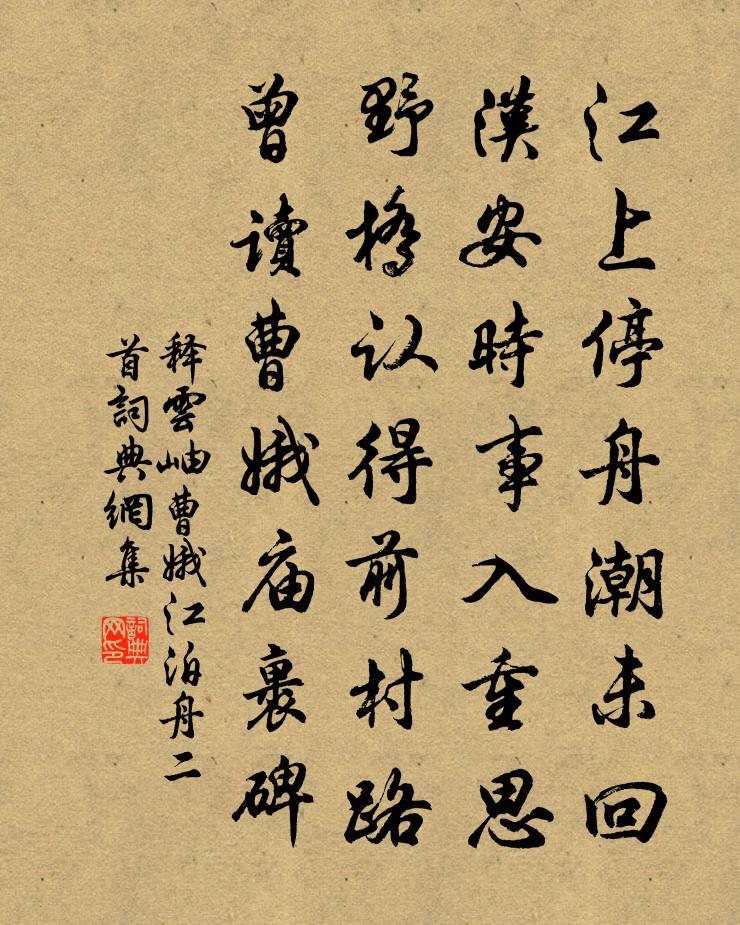 江上停舟潮未回
漢安時事入重思
野橋认得前村路
曾讀曹娥庙裏碑
释雲岫曹娥江泊舟二
首詞典網集
詞典
网印